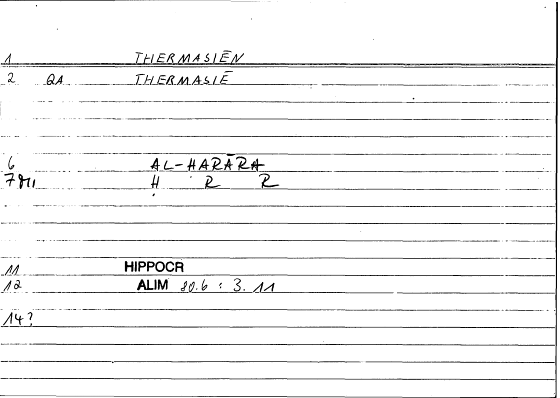 1 THERMASIĒN
2 QA THERMASIĒ
6 AL-HARĀRA
7 Ḥ R R
11 HIPPOCR
12 ALIM 80.6 : 3. 11
14?